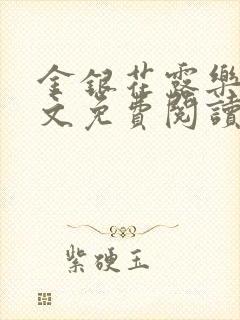 金銀花露樂
文免費閱讀
紫硬玉